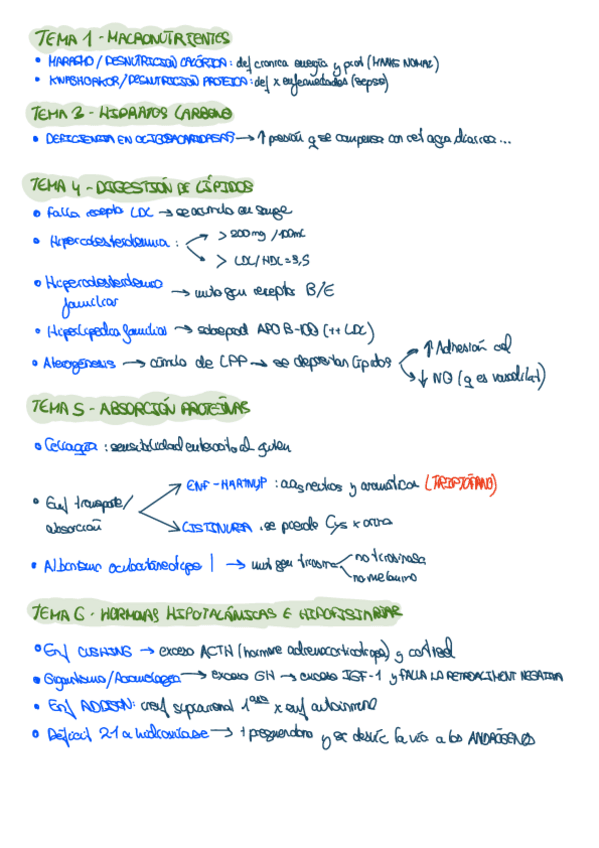 TEMA 1 - MACRONUTRIENTES
• MARASMO / DESNUTRICIÓN CALÓRICA: def cronica energía y prot (HMNS NORMAL)
• KWASHIORKOR / DESNUTRICIÓN PROTEICA: def x enfermedades (sepsis)
TEMA 3 - HIDRATOS CARBONO
• DEFICIENCIA EN OLIGOSACARIDASAS → ↑ presión q se compensa con cel agua, diarrea...
TEMA 4 - DIGESTIÓN DE LÍPIDOS
• Falla recepto LDC → se acumula en sangre
• Hipercolesterolemia : > 200 mg / 100 mL
> LDL / HDL = 3,5
• Hipercolesterolemia
familiar → muto gen receptor B/E
• Hiperlipedica familiar → sobreprod APO B-100 (++ LDL)
• Aterogénesis → cúmulo de LPP → se depositan lípidos ↑ Adhesión cel
↓ NO (q es vasodilat)
TEMA 5 - ABSORCIÓN PROTEÍNAS
• Celiaquía : sensibilidad al gluten
• Enf transporte/
absorción
ENF-HARTNUP : aas neutros y aromáticos (TRIPTÓFANO)
CISTINURIA : se pierde Cys x orina
• Albinismo oculocutáneo tipo I → mut gen tirosina no tirosinasa
no melanina
TEMA 6 - HORMONAS HIPOTALÁMICAS E HIPOFISIARIAR
• Enf CUSHING → exceso ACTH (hormona adrenocorticotropa) y cortisol
• Gigantismo/Acromegalia → exceso GH → exceso IGF-1 y FALLA LA RETROALIMENT NEGATIVA
• Enf ADDISON: insuf suprarrenal 1aria x enf autoinmune
• Déficit 21 α hidroxilasa → ↑ y se desvía la vía a los ANDRÓGENOS